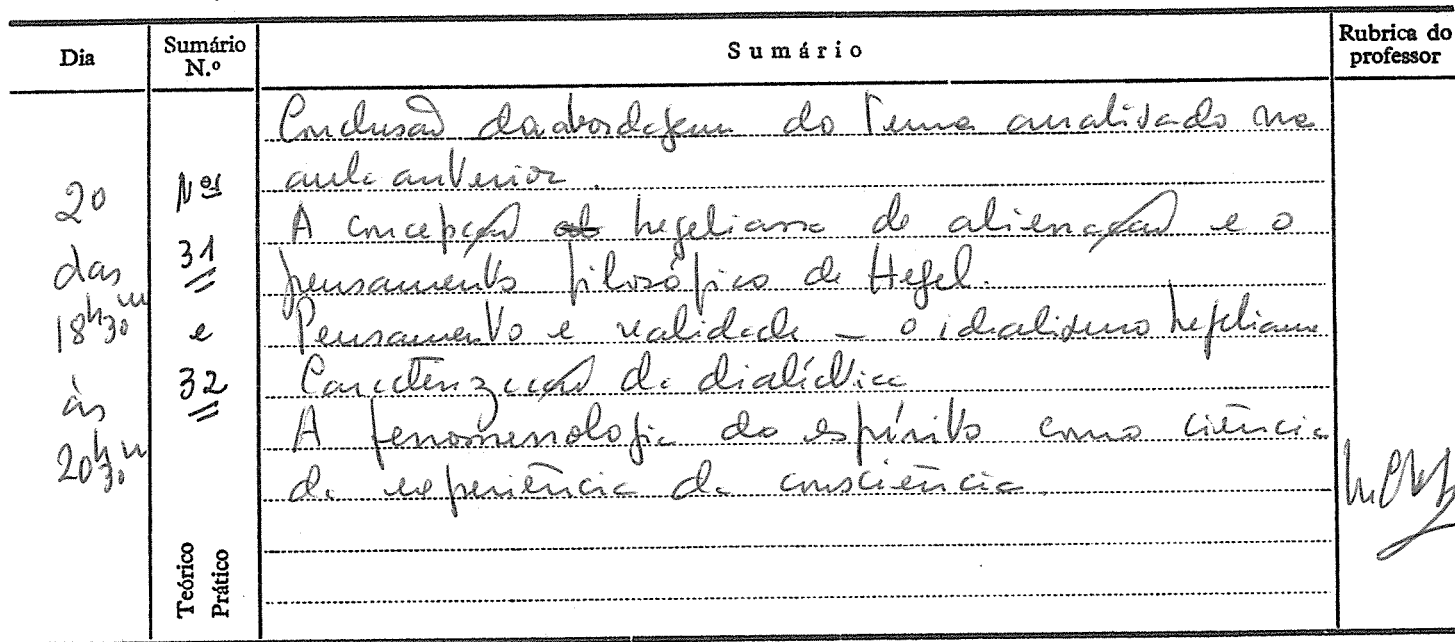 Dia
Sumário N.º
Sumário
Rubrica do professor
20
das
18h30m
às
20h30m
Nos
31
e
32
Teórico
Prático
Conclusão da abordagem do tema analisado na
aula anterior.
A concepção hegeliana de alienação e o
pensamento filosófico de Hegel.
Pensamento e realidade – o idealismo hegeliano
Caracterização da dialéctica
A fenomenologia do espírito como ciência
da experiência da consciência.